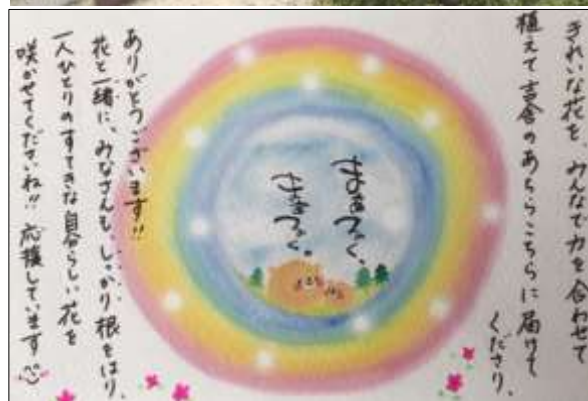 きれいな花を、みんなで力を合わせて
植えて吉舎のあちらこちらに届けて
くださり、
まあるく、
ありがとうございます!!
花と一緒に、みなさんも、しっかり根をはり、
一人ひとりのすてきな自分らしい花を
咲かせてくださいね!! 応援しています